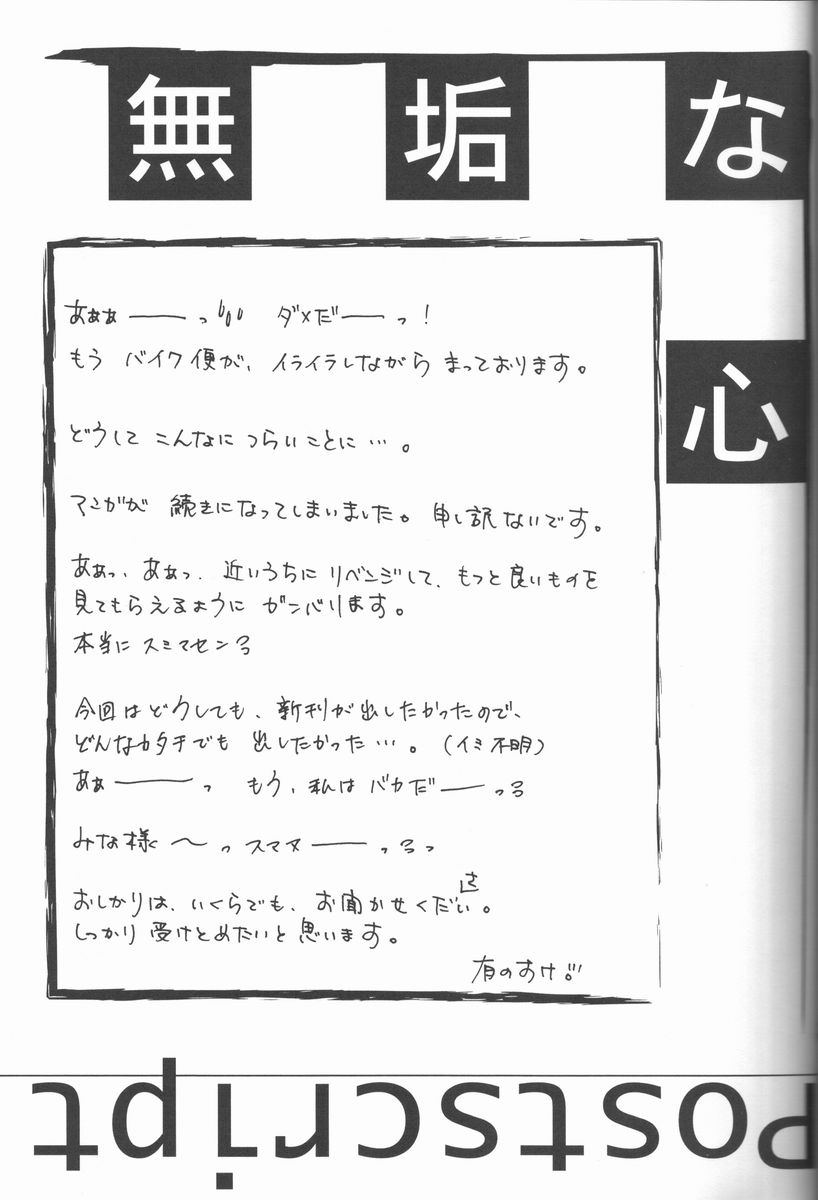 無垢な
心
あぁぁ——っ ダメだ——っ!
もう バイク便が、イライラしながら まっております。
どうして こんなに つらいことに…。
マンガが 続きになってしまいました。申し訳ないです。
あぁっ、あぁっ、近いうちに リベンジして、もっと良いものを
見てもらえるように ガンバります。
本当に スミマセンっ
今回は どうしても、新刊が出したかったので、
どんなカタチでも 出したかった…。(イミ不明)
あぁ——っ もう、私は バカだ——っっ
みな様 〜っ スマヌ——っっっ
おしかりは、いくらでも、お聞かせください。
しっかり 受けとめたいと 思います。
有のすけ
Postscript